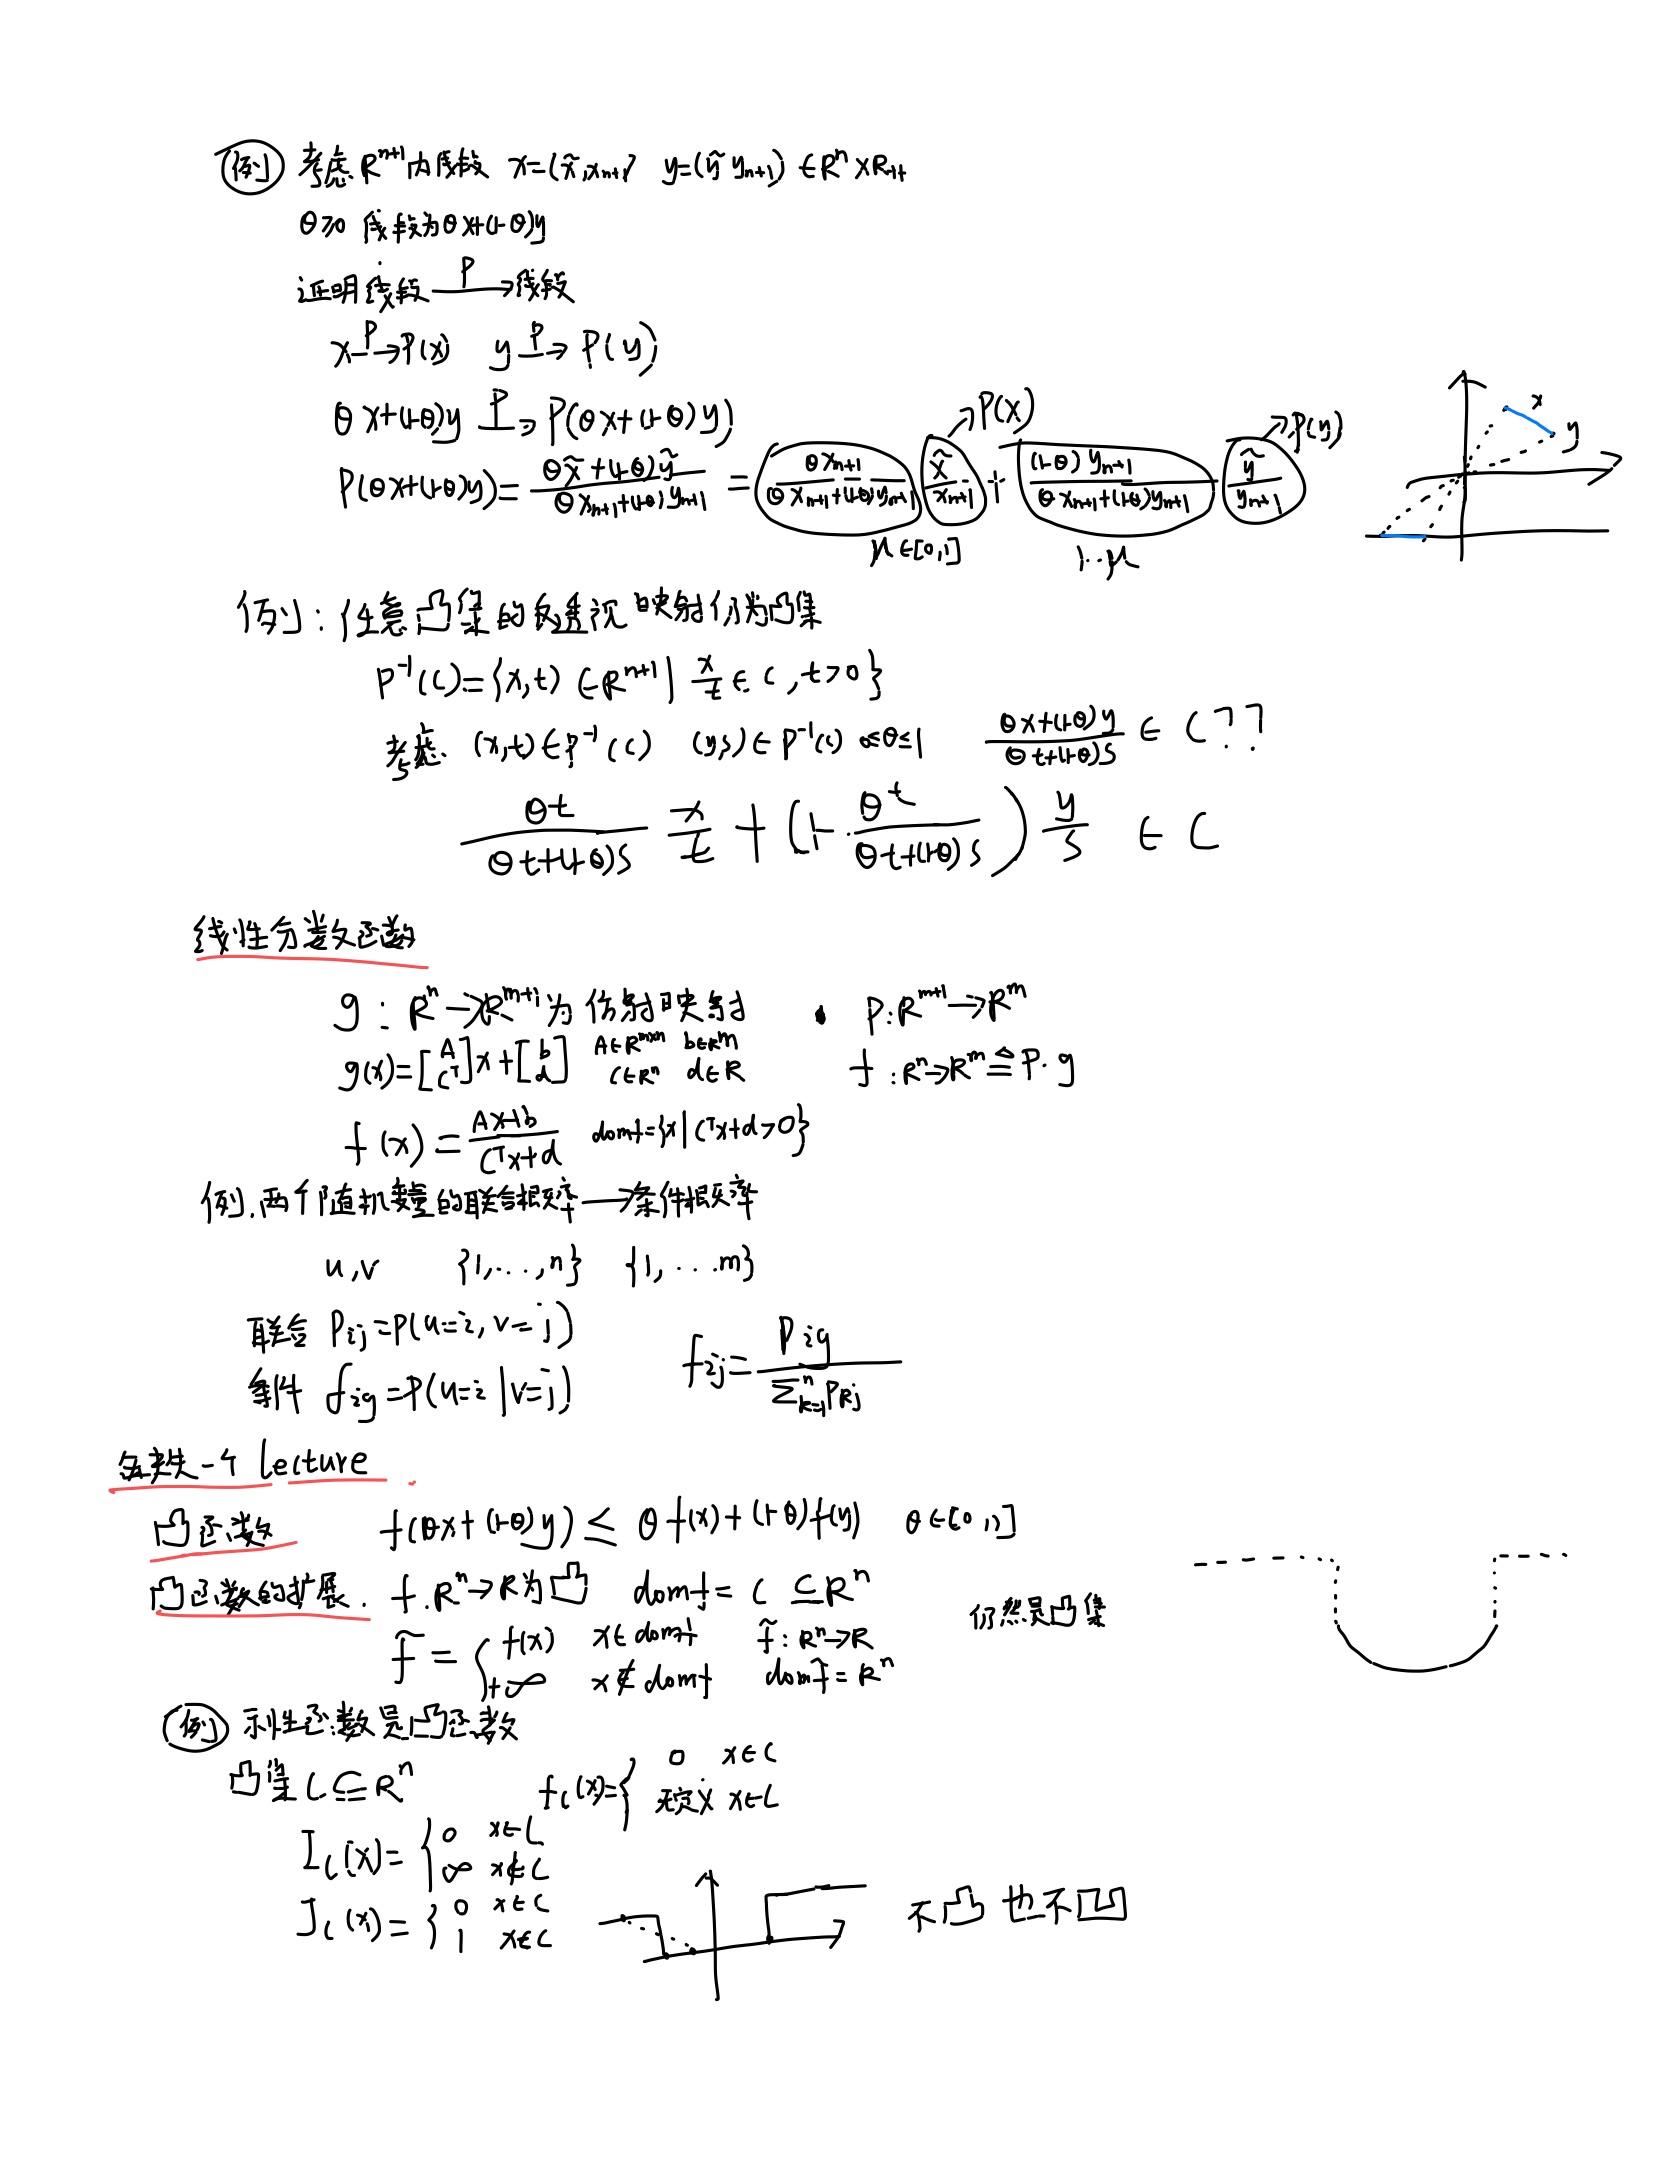 例 考虑 R^{n+1} 内线段 x=(x̃,x_{n+1}) y=(ỹ y_{n+1}) ∈R^n×R_{++}
θ≥0 线段为θx+(1-θ)y
证明线段 —P→ 线段
x —P→ P(x) y —P→ P(y)
θx+(1-θ)y —P→ P(θx+(1-θ)y)
P(θx+(1-θ)y)= \frac{θx̃+(1-θ)ỹ}{θx_{n+1}+(1-θ)y_{n+1}} = \frac{θx_{n+1}}{θx_{n+1}+(1-θ)y_{n+1}} \frac{x̃}{x_{n+1}} + \frac{(1-θ)y_{n+1}}{θx_{n+1}+(1-θ)y_{n+1}} \frac{ỹ}{y_{n+1}}
→P(x) →P(y)
μ∈[0,1] 1-μ
x
y
例: 任意凸集的反透视映射仍为凸集
P^{-1}(C)={x,t) ∈R^{n+1} | \frac{x}{t} ∈ C, t>0}
考虑 (x,t)∈P^{-1}(C) (y,s)∈P^{-1}(C) 0≤θ≤1 \frac{θx+(1-θ)y}{θt+(1-θ)S} ∈ C??
\frac{θt}{θt+(1-θ)S} \frac{x}{t} + (1-\frac{θt}{θt+(1-θ)S}) \frac{y}{S} ∈ C
线性分数函数
g: R^n→R^{m+1}为仿射映射 P:R^{m+1}→R^m
g(x)=[A C^T]x+[b d] A∈R^{m×n} b∈R^m C∈R^n d∈R f:R^n→R^m ≜ P·g
f(x)= \frac{Ax+b}{C^Tx+d} domf={x|C^Tx+d>0}
例.两个随机变量的联合概率→条件概率
u,v {1,...,n} {1,...m}
联合 P_{ij}=P(u=i,v=j)
条件 f_{ij}=P(u=i|v=j) f_{ij}= \frac{P_{ij}}{∑_{k=1}^n P_{kj}}
缺失一个 lecture
凸函数 f(θx+(1-θ)y)≤θf(x)+(1-θ)f(y) θ∈[0,1]
凸函数的扩展. f.R^n→R为凸 domf= C ⊆R^n
仍然是凸集
f̃ = { f(x) x∈domf f̃: R^n→R
+∞ x∉domf domf̃=R^n
例 示性函数是凸函数
凸集 C⊆R^n f_C(x)={ 0 x∈C
无定义 x∈C
I_C(x)={ 0 x∈C
∞ x∉C
J_C(x)={ 0 x∈C
1 x∈C
不凸也不凹